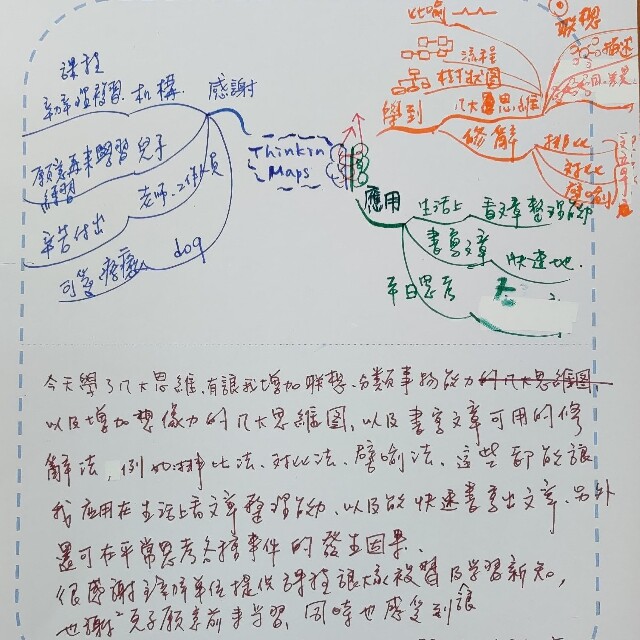 比喻
聯想
描述
流程
樹狀圖
學到
八大思維
修辭
排比
對比
譬喻
課程
機構
感謝
Thinkin
Maps
願意再來學習 兒子
練習
老師、工作人員
辛苦付出
dog
可愛 療癒
應用
生活上
看文章整理
書寫文章
快速地
平日思考
今天學了八大思維,有讓我增加聯想、分類事物能力的八大思維圖
以及增加想像力的八大思維圖,以及書寫文章可用的修
辭法,例如排比法、對比法、譬喻法,這些都能讓
我應用在生活上看文章整理 、以及能快速書寫出文章、另外
還可在平常思考各種事件的發生因果.
很感謝主辦單位提供課程讓大家複習及學習新知,
也謝 兒子願意前來學習,同時也感受到讓